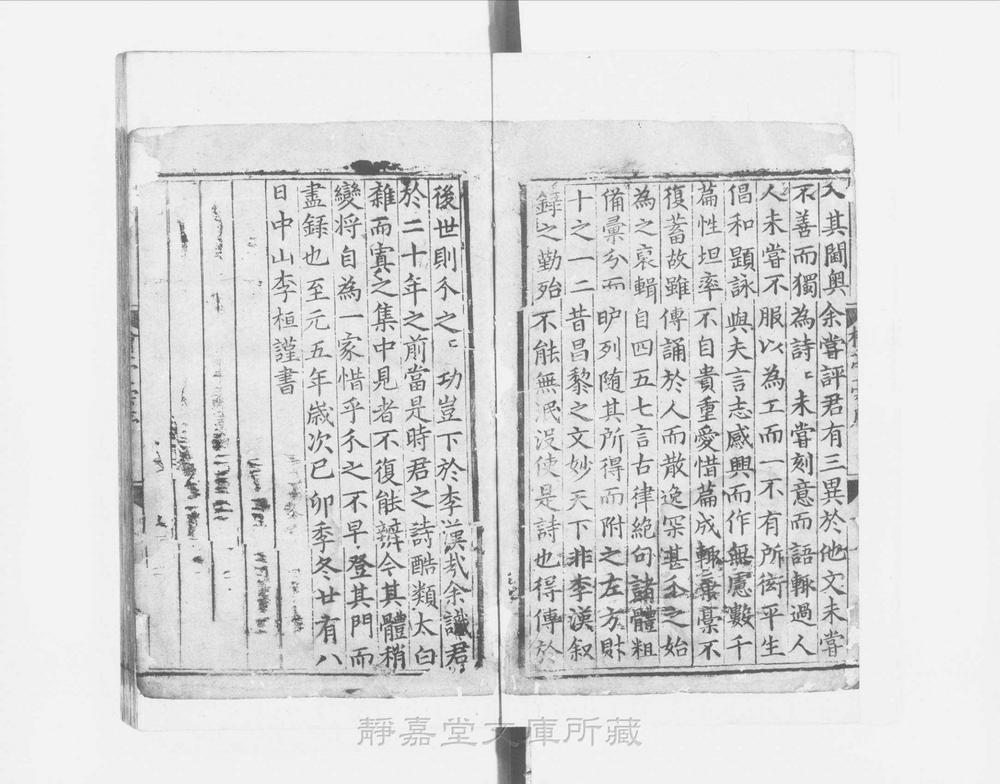 入其閫奧余嘗評君有三異於他文未嘗
不善而獨為詩〻未嘗刻意而語輒過人
人未嘗不服以為工而一不有所衒平生
倡和題詠與夫言志感興而作無慮數千
篇性坦率不自貴重愛惜篇成輒棄稾不
復蓄故雖傳誦於人而散逸罙甚仌之始
為之裒輯自四五七言古律絶句諸體粗
備彙分而胪列随其所得而附之左方財
十之一二昔昌黎之文妙天下非李漢叙
錄之勤殆不能無泯没使是詩也得傳於
後世則仌之〻功豈下於李漢㢤余識君
於二十年之前當是時君之詩酷類太白
雜而寘之集中見者不復能辨今其體稍
變将自為一家惜乎仌之不早登其門而
盡録也至元五年歳次己卯季冬廿有八
日中山李桓謹書
靜嘉堂文庫所藏